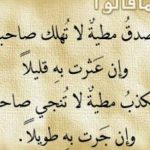 ما قالوا
لصدقُ مطيةٌ لا تُهلك صاحبـ
وإن عَثرت به قليلاً
لكذبُ مطيةٌ لا تُنجي صاحـ
وإن جَرت به طويلاً.